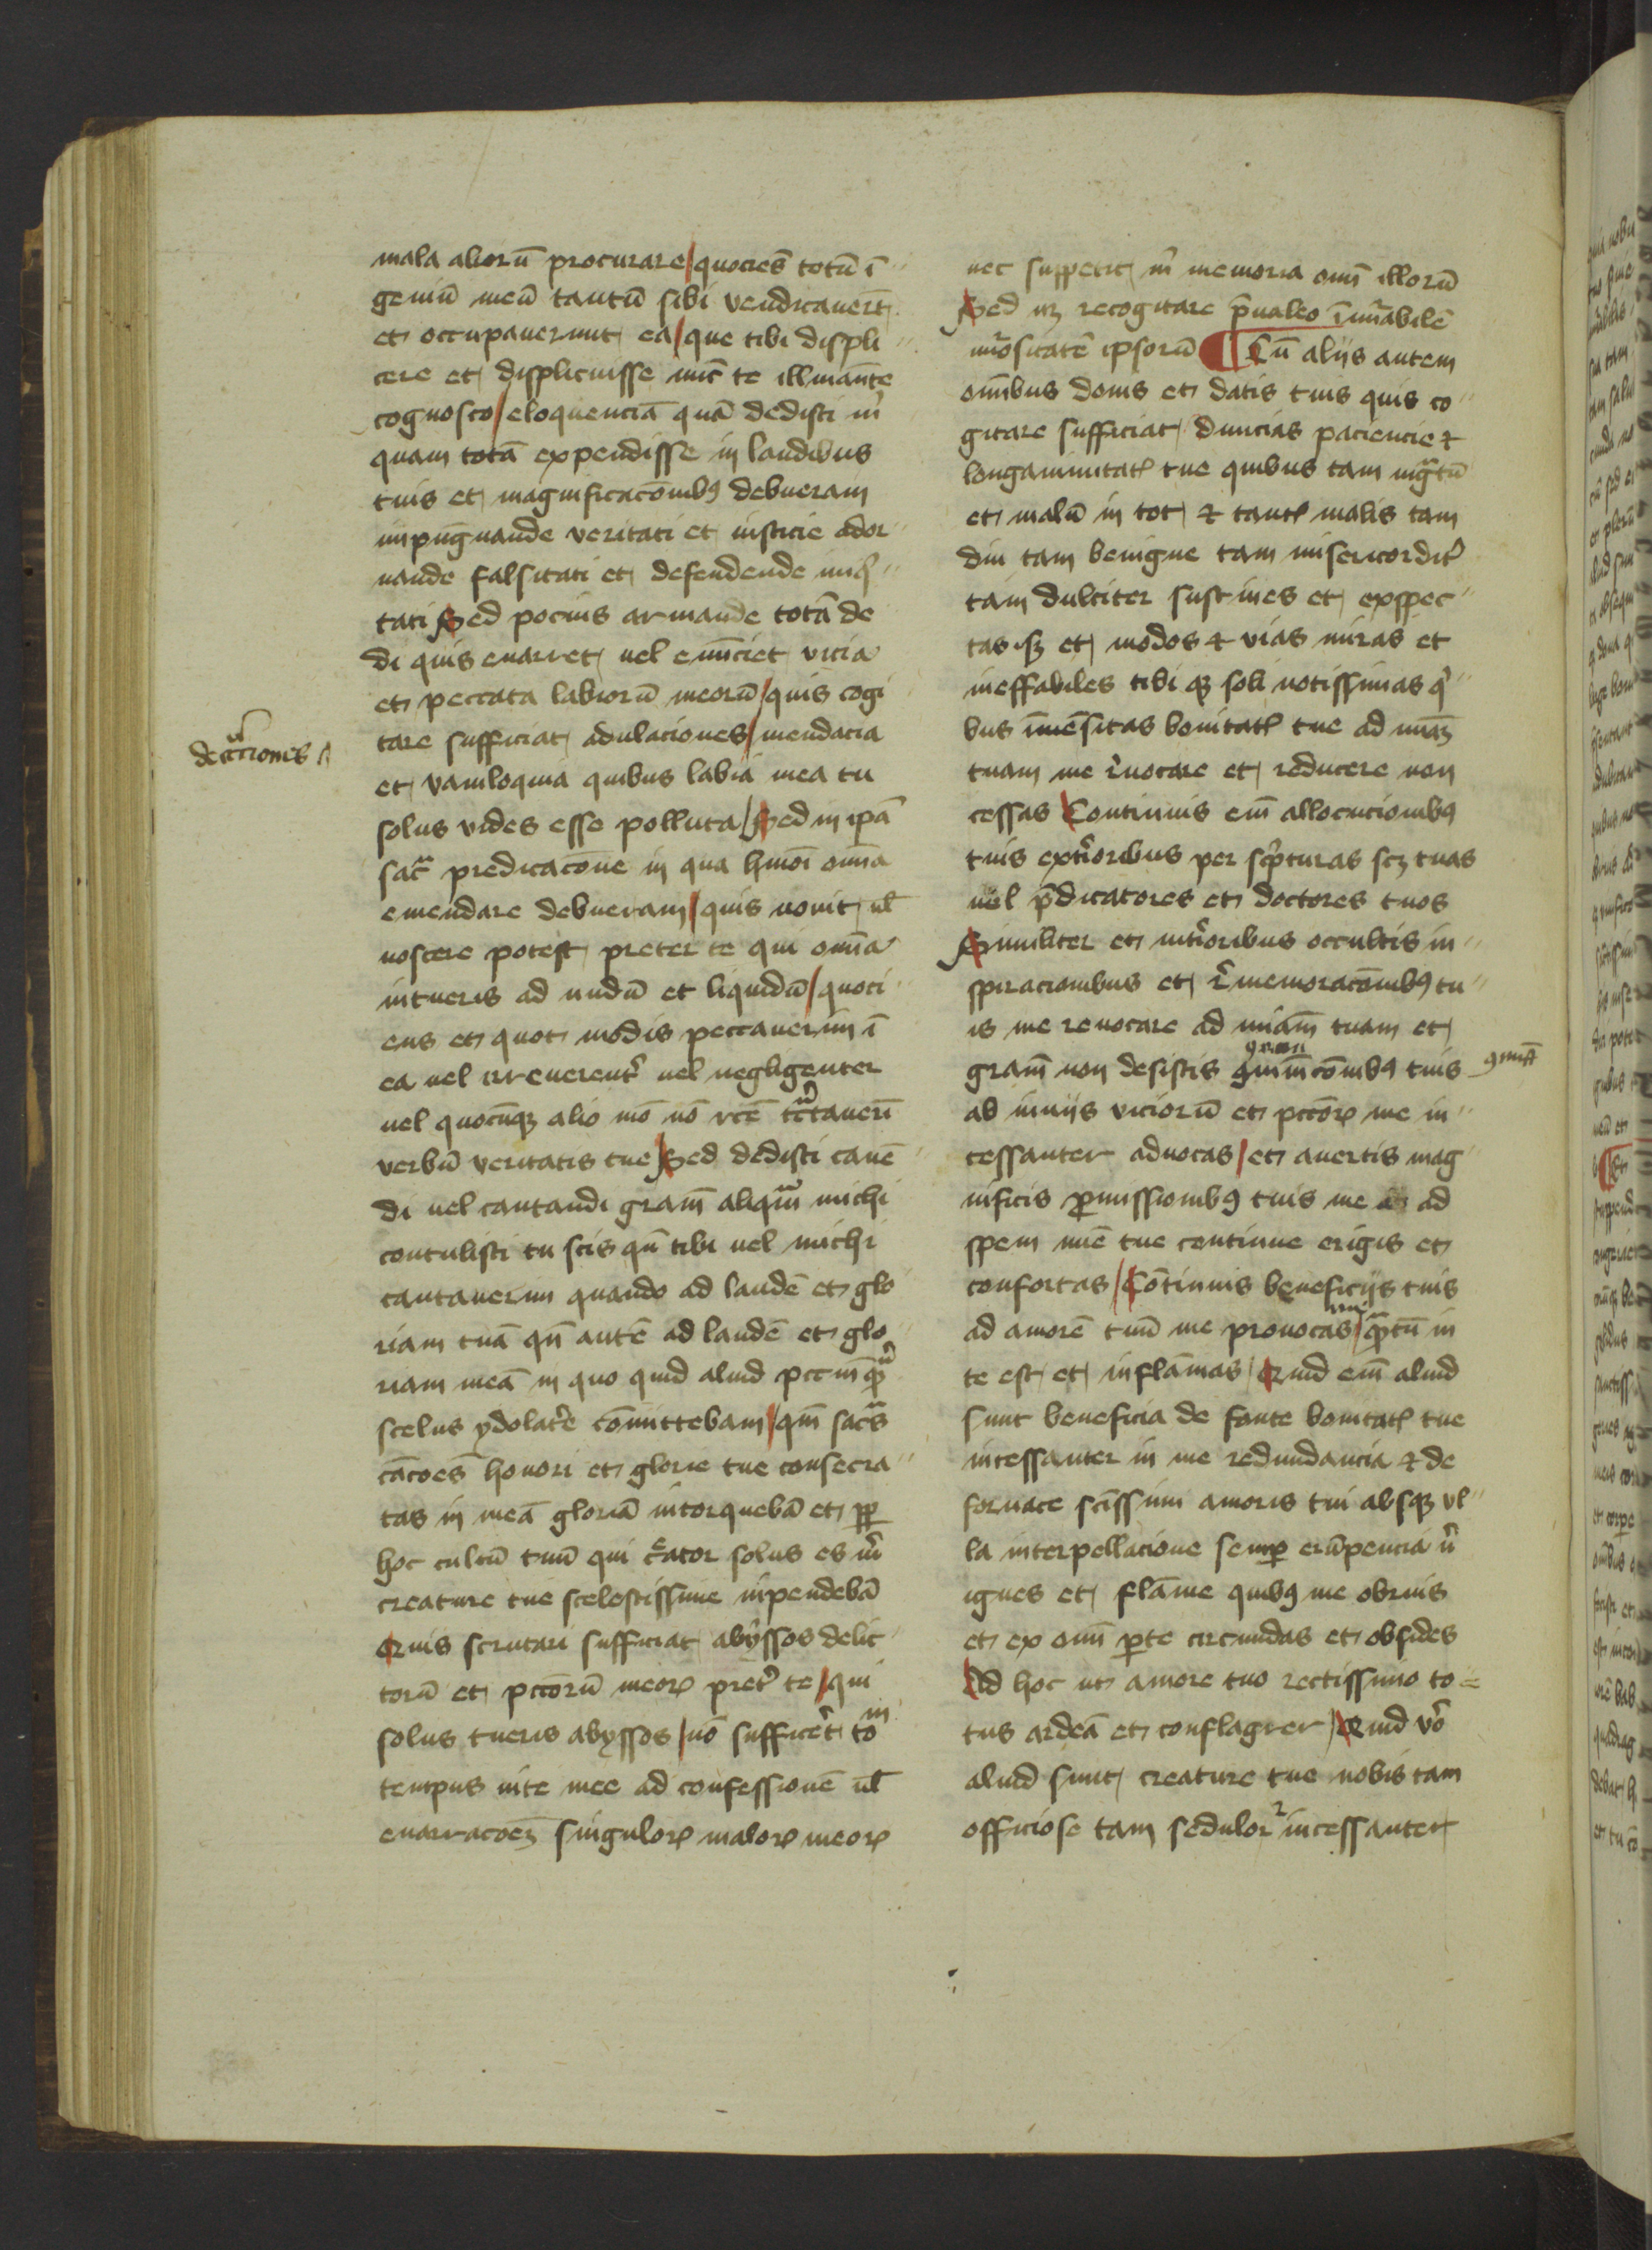 mala alioru̅ procurare / quocie̅s totu̅ i̅
geniu̅ meu̅ tantu̅ sibi vendicaueri̅t
et occupauerunt ea / que tibi displi
cere et displicuisse nu̅c te illu̅ina̅te
cognosco / eloquencia̅ qua̅ dedisti m̊
quam tota̅ expendisse in laudibus
tuis et magnificaco̅nibꝰ debueram
inpu̅gnande veritati et iusticie ador
nande falsitati et defendende iniq̊
tati Sed pocius armande tota̅ de
di quis enarret uel enu̅ciet vicia
et peccata labioru̅ meoru̅ / quis cogi
tare sufficiat adulaciones / mendacia
detractiones
et vaniloquia quibus labia mea tu
solus vides esse polluta / Sed in ip̅a
sac̅ predicaco̅ne in qua hm̅oi om̅ia
emendare debueram / quis nouit ul̅
noscere potest preter te qui om̅ia
intueris ad nudu̅ et liquidu̅ / quoci
ens et quot modis peccauerim i̅
ea uel irreuerent̉ uel negligenter
uel quocu̅qꝫ alio mo̅ no̅ rc̅e tc̅taueri̅
verbu̅ veritatis tue / Sed dedisti cane̅
di uel cantandi gram̅ aliqua̅ michi
contulisti tu scis qn̅ tibi uel michi
cantauerim quando ad laude̅ et glo
riam tua̅ qn̅ aute̅ ad laude̅ et glo
riam mea̅ in quo quid aliud pccm̅ qᷓ
scelus ydolat̉e co̅mittebam / qm̅ sac̅s
ca̅coe̅s honori et glorie tue consecra
tas in mea̅ gloria̅ intorqueba̅ et ꝑꝑ
hoc cultu̅ tuu̅ qui c̉ator solus es m̊
creature tue scelestissime inpendeba̅
Quis scrutari sufficiat abyssos delic
toru̅ et pcc̅oru̅ meoꝝ pret̉ te / qui
solus tueris abyssos / no̅ sufficeret to̅m
tempus uite mee ad confessione̅ ul̅
enarracoe̅ꝫ singuloꝝ maloꝝ meoꝝ
nec suppetit m̊ memoria om̅i illoru̅
Sed nꝫ recogitare p̅ualeo i̅nu̅abile̅
nu̅ositate̅ ipsoru̅ ¶ Cu̅ aliis autem
om̅ibus donis et datis tuis quis co
gitare sufficiat diuicias paciencie ⁊
longanimitatꝭ tue quibus tam ingᷓtu̅
et malu̅ in tot ⁊ tantꝭ malis tam
diu tam benigne tam misericordit̉
tam dulciter sustines et exspec
tas sꝫ et modos ⁊ vias miras et
ineffabiles tibi qꝫ soli notissimas q̊
bus i̅mensitas bonitatꝭ tue ad mia̅ꝫ
tuam me r̉uocare et reducere non
cessas Continuis em̅ allocucionibꝰ
tuis ext̉ioribus per sc̉pturas scꝫ tuas
uel p̅dicatores et doctores tuos
Similiter et int̉ioribus occultis in
spiracionibus et r̉memoraco̅nibꝰ tu
is me reuocare ad miam̅ tuam et
gram̅ non desistis ꝯmi̅naco̅nibꝰ tuis
ab inuiis vicioru̅ et pcc̅oꝝ me in
cessanter aduocas / et auertis mag
nificis ꝓmissionibꝰ tuis me ad
spem mie̅ tue continue erigis et
confortas / Co̅tinuis beneficiis tuis
ad amore̅ tuu̅ me prouocas / qᷓtu̅ in
te est et infla̅mas / Quid em̅ aliud
sunt beneficia de fonte bonitatꝭ tue
incessanter in me redundancia ⁊ de
fornace sc̅issimi amoris tui absqꝫ vl
la interpellacione semꝑ eru̅pencia n̊
ignes et fla̅me quibꝰ me obruis
et ex om̅i ꝑte circundas et obsides
Ad hoc ut amore tuo rectissimo to
tus ardea̅ et conflagrer / Quid v̊o
aliud sunt creature tue nobis tam
officiose tam sedulo ⁊ incessanter